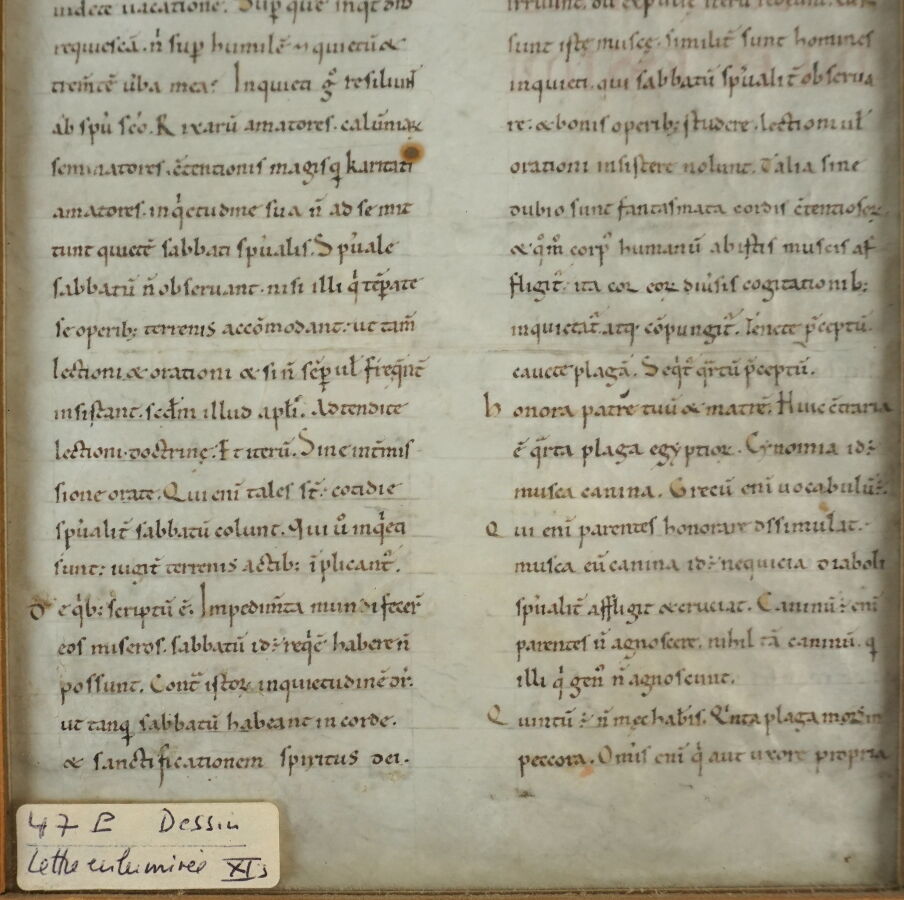 requiescā. n̄ suꝑ humilē ⁊ quietū &
trem̄tē ūba mea? Inquieti g̊ resiliunt
ab spū sc̄o. Rixarū amatores. calūniaꝝ
seminatores. c̄tentionis magis q̄ karitati
amatores. inq̇etudine sua n̄ ad se mit
tunt quietē sabbati spūalis. Spūale
sabbatū n̄ observant. nisi illi q̇ tēꝑate
se operib; terrenis accōmodant. ut tam̄
lectioni. & orationi & si n̄ sēꝑ ul̄ freq̄nt̄
insistant. sc̄dm illud apl̄i. Adtendite
lectioni. doctrinę. Et iterū. Sine int̄mis
sione orate. Qui enī tales st̄. cotidie
spūalit̄ sabbatū colunt. Qui ū inq̇eti
sunt. iugit̄ terrenis actib; īplicant᷑.
De q̇b; scriptū ē. Impedim̄ta mundi fecer̄
eos miseros. sabbatū id ÷ req̇ē habere n̄
possunt. Cont̄ istoꝝ inquietudinē dr̄.
ut tanq̄ sabbatū habeant in corde.
& sanctificationem spiritus dei.
sunt istę muscę. similit̄ sunt homines
inquieti. qui sabbatū spūalit̄ observa
re. & bonis operib; studere. lectioni ul̄
orationi insistere nolunt. Talia sine
dubio sunt fantasmata cordis c̄tentiosoꝝ
& q̊m̄ corp᷒ humanū ab istis muscis af
fligit᷑. ita cor eoꝝ diūsis cogitationib;
inquietat᷑. atq; cōpungit᷑. Tenete p̄ceptū.
cavete plagā. Seq̇t᷑ q̄rtū p̄ceptū.
Honora patrē tuū & matrē. Huic c̄traria
ē q̄rta plaga egyptioꝝ. Cynomia id ÷
musca canina. Grecū enī vocabulū ÷.
Qui enī parentes honorare dissimulat.
musca eū canina id ÷ nequicia diaboli
spūalit̄ affligit & cruciat. Caninū ÷ enī
parentes n̄ agnoscere. nihil tā caninū. q̄
illi q̇ gen̄ n̄ agnoscunt.
Quintū ÷ n̄ męchab̄is. Q̇nta plaga mors in
peccora. Omīs enī q̇ aut uxore propria
47 E Dessin
Lettre enluminée XIs